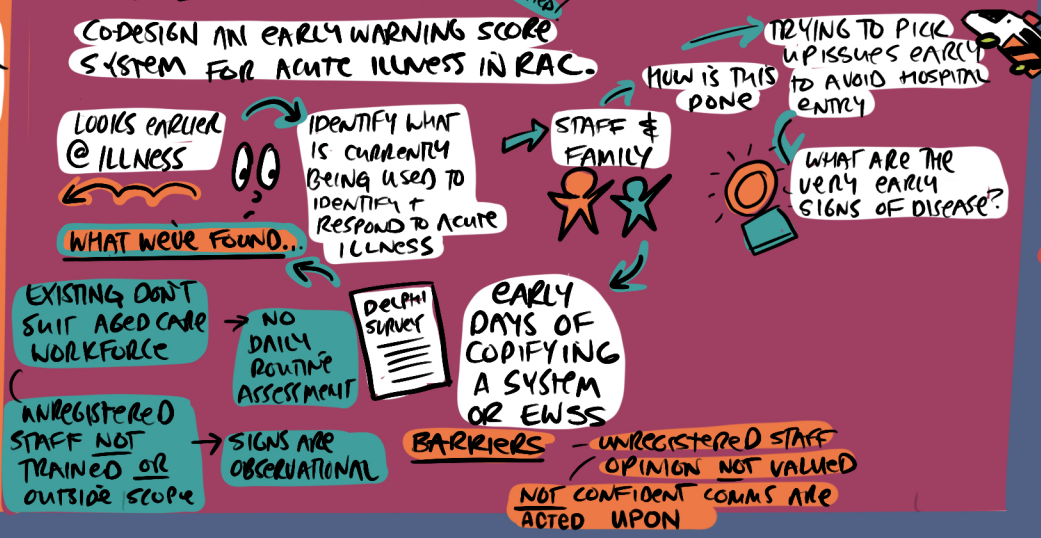 CO-DESIGN AN EARLY WARNING SCORE
SYSTEM FOR ACUTE ILLNESS IN RAC.
LOOKS EARLIER
@ ILLNESS
IDENTIFY WHAT
IS CURRENTLY
BEING USED TO
IDENTIFY +
RESPOND TO ACUTE
ILLNESS
STAFF &
FAMILY
HOW IS THIS
DONE
TRYING TO PICK
UP ISSUES EARLY
TO AVOID HOSPITAL
ENTRY
WHAT ARE THE
VERY EARLY
SIGNS OF DISEASE?
EARLY
DAYS OF
CODIFYING
A SYSTEM
OR EWSS
DELPHI
SURVEY
WHAT WE'VE FOUND...
EXISTING DON'T
SUIT AGED CARE
WORKFORCE
NO
DAILY
ROUTINE
ASSESSMENT
UNREGISTERED
STAFF NOT
TRAINED OR
OUTSIDE SCOPE
SIGNS ARE
OBSERVATIONAL
BARRIERS
- UNREGISTERED STAFF
OPINION NOT VALUED
NOT CONFIDENT COMMS ARE
ACTED UPON